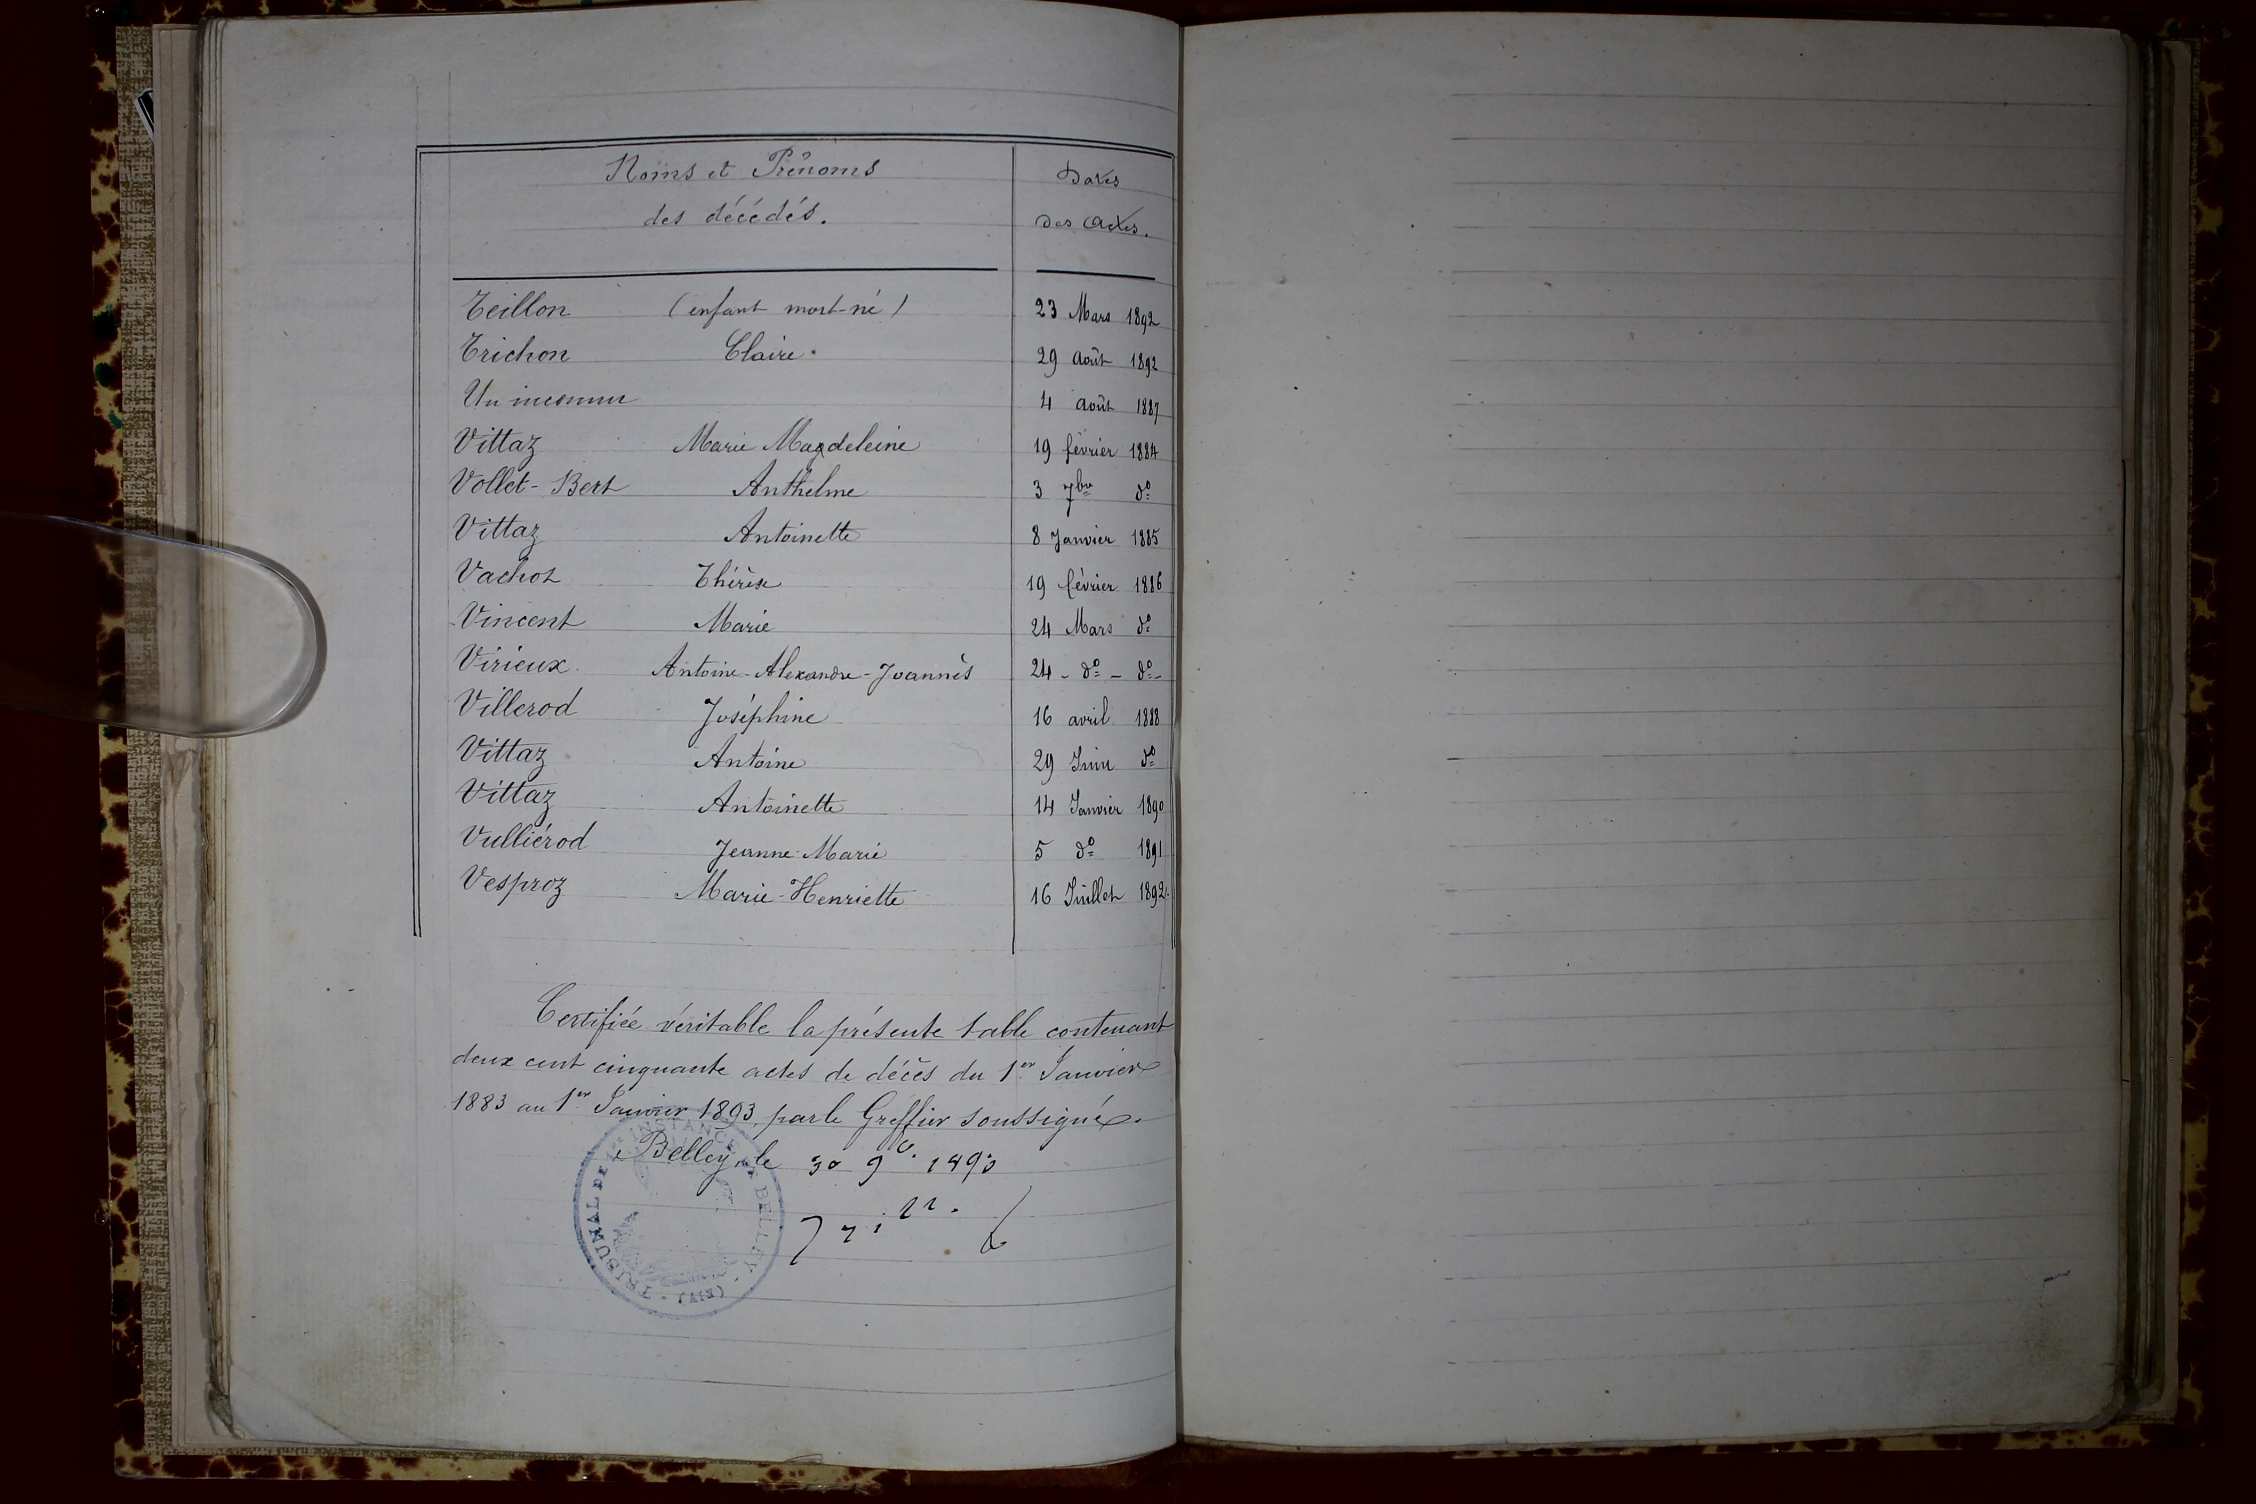 Noms et Prénoms
des décédés.
Dates
des actes.
Teillon (enfant mort-né) 23 Mars 1892
Trichon Claire. 29 Août 1892
Un inconnu 4 Août 1887
Vittaz Marie Magdeleine 19 février 1884
Vollet-Bert Anthelme 3 7bre do
Vittaz Antoinette 8 Janvier 1885
Vachot Thérèse 19 février 1886
Vincent Marie 24 Mars do
Virieux Antoine-Alexandre-Joannès 24 - do - do -
Villerod Joséphine 16 avril 1888
Vittaz Antoine 29 Juin do
Vittaz Antoinette 14 Janvier 1890
Vulliérod Jeanne-Marie 5 do 1891
Vesproz Marie-Henriette 16 Juillet 1892.
Certifiée véritable la présente table contenant
deux cent cinquante actes de décès du 1er Janvier
1883 au 1er Janvier 1893, par le Greffier soussigné.
Belley, le 30 9b. 1893
TRIBUNAL DE 1ERE INSTANCE DE BELLEY. (AIN)